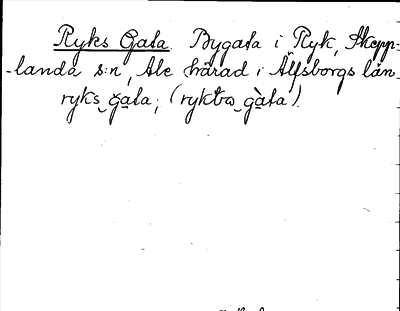 Ryks Gata. Bygata i Ryk, Skepp-
-landa s:n, Ale härad i Älfsborgs län.
ryks gata; (ryktɷ gàta).